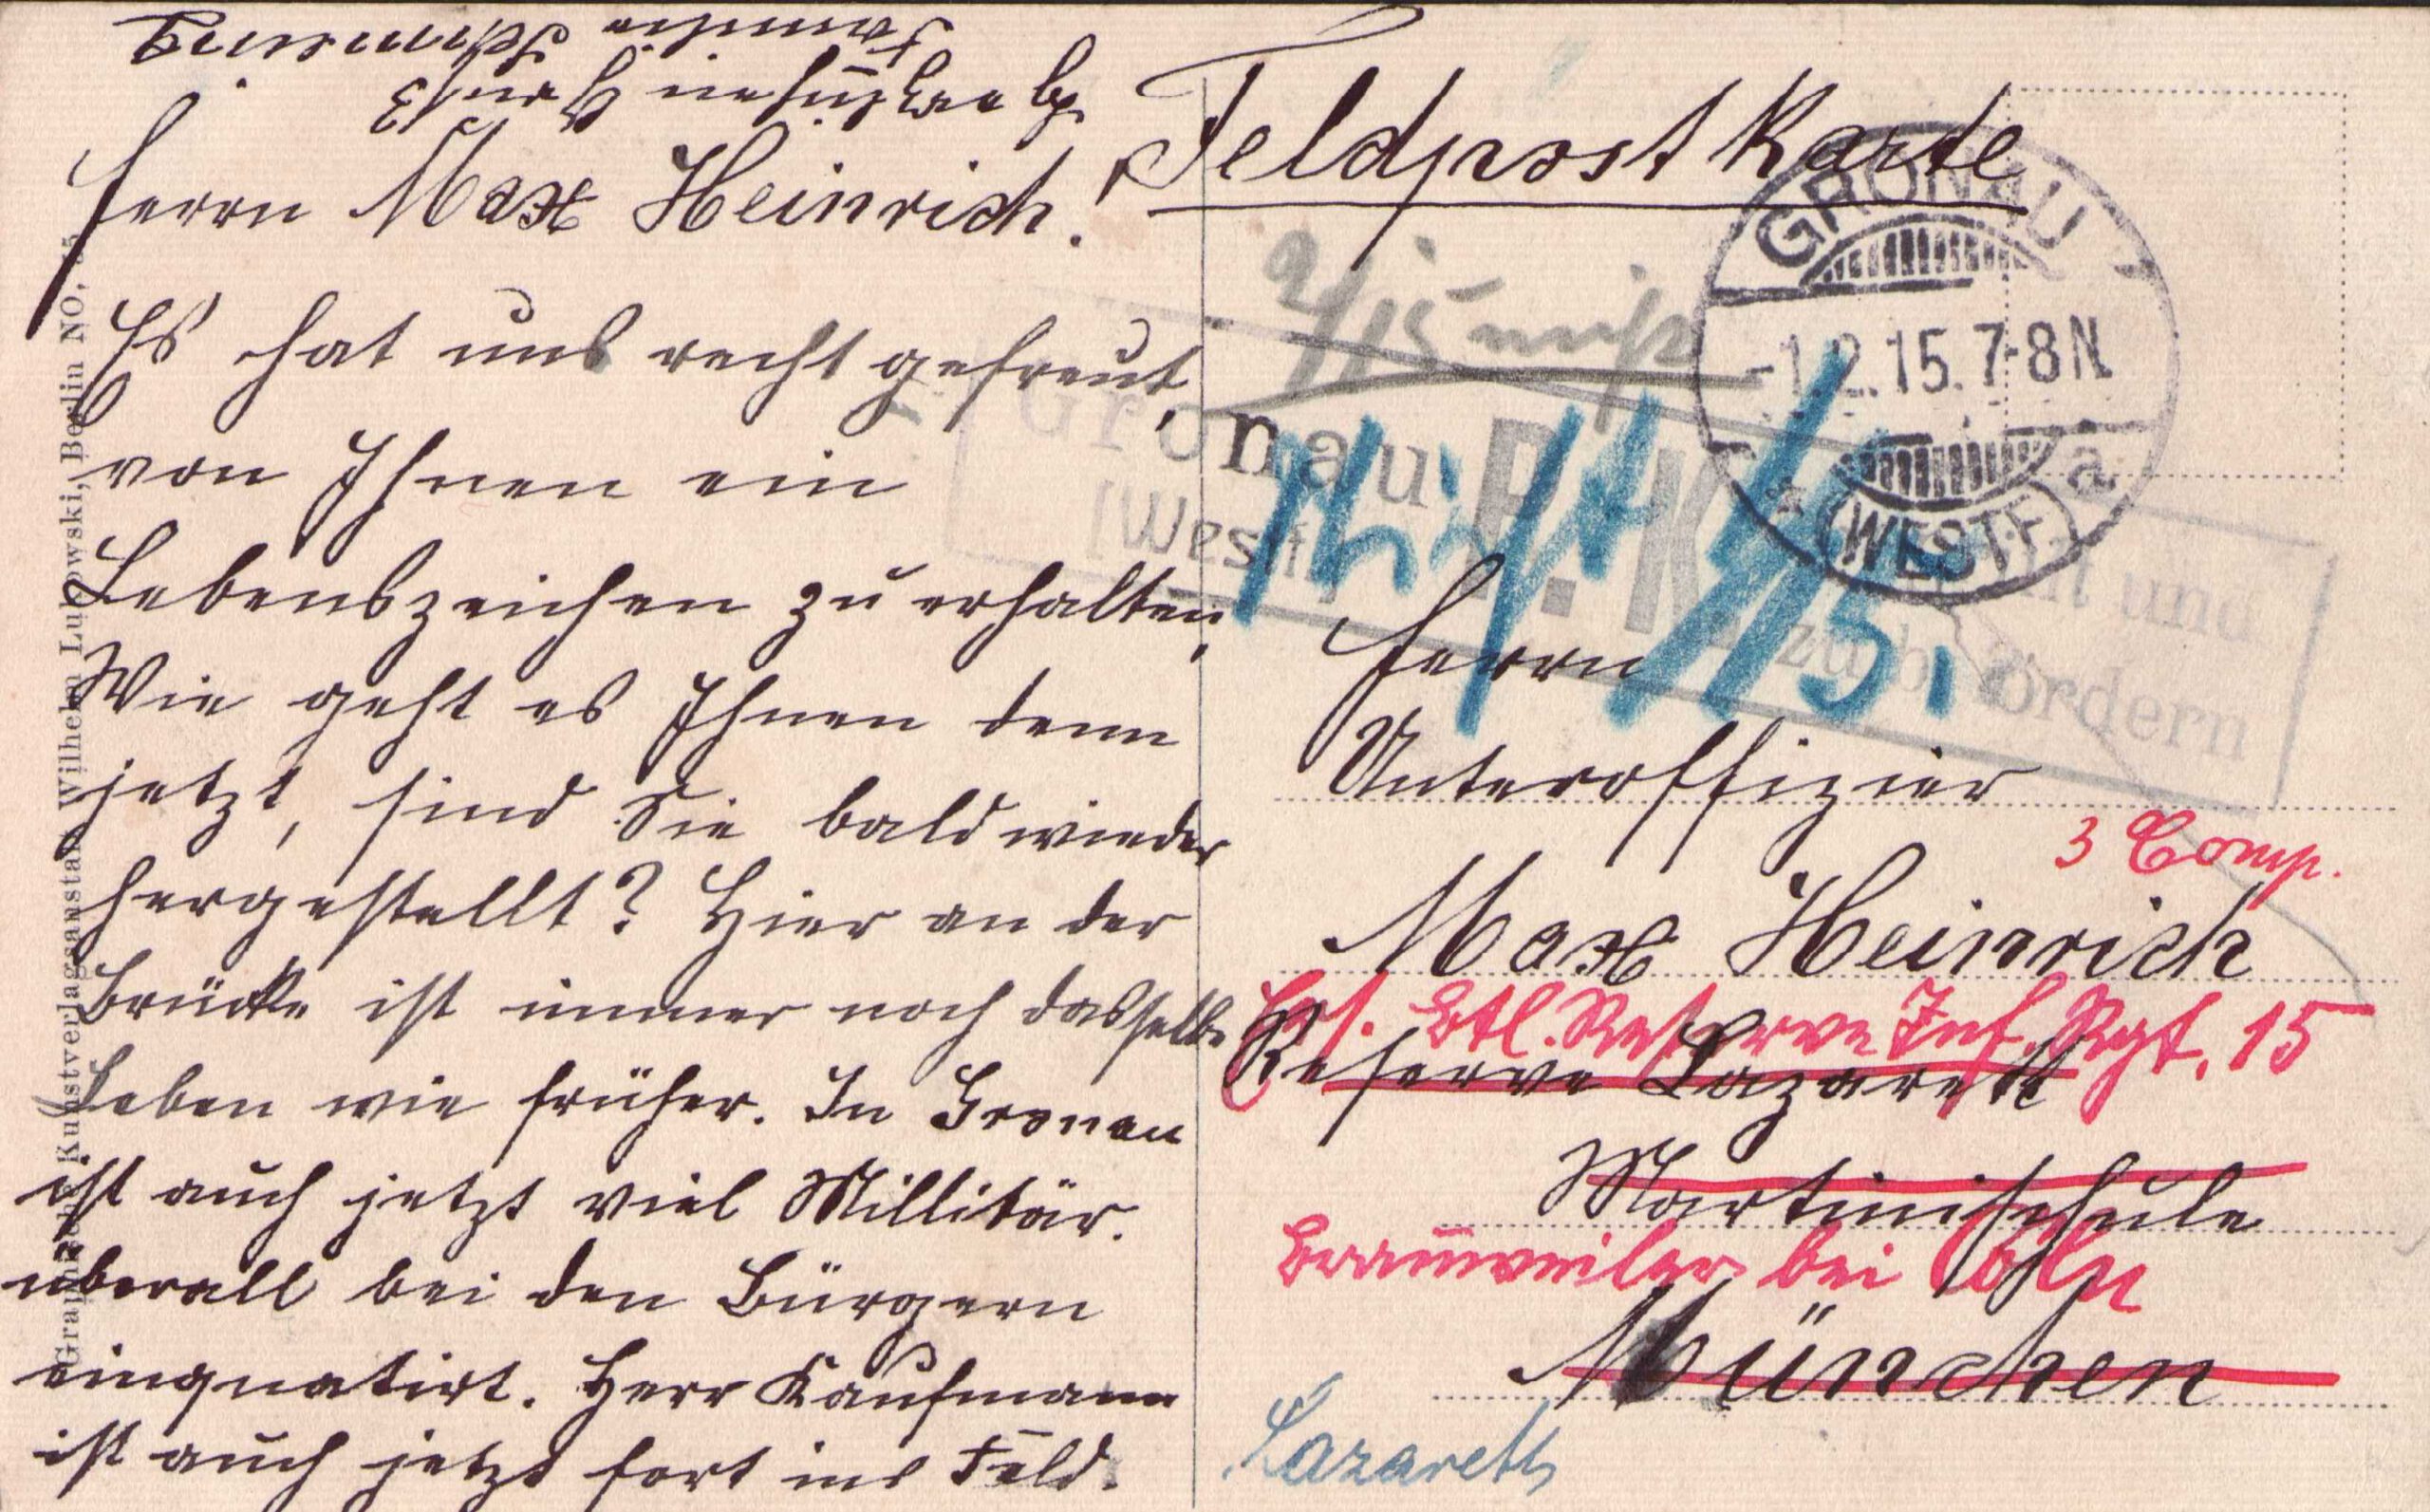 Herrn Max Heinrich!
Es hat uns recht gefreut,
von Ihnen ein
Lebenszeichen zu erhalten,
Wie geht es Ihnen denn
jetzt, sind Sie bald wieder
hergestellt? Hier an der
Brücke ist immer noch dasselbe
Leben wie früher. In Gronau
ist auch jetzt viel Millitär.
überall bei den Bürgern
einquatirt. Herr Kaufmann
ist auch jetzt fort ins Feld.
Familie
Feldpost Karte
GRONAU
-1.2.15.7-8N
a
WESTF.
Gronau
(Westf.)
P.K.
und
zu befördern
Herrn
Unteroffizier
3 Comp.
Max Heinrich
Ers. Btl. Reserve Inf. Rgt. 15
Reserve Lazarett
Martinischule
Brauweiler bei Cöln
München
Lazarett
Kunstverlagsanstalt Wilhelm Lubowski, Berlin NO.